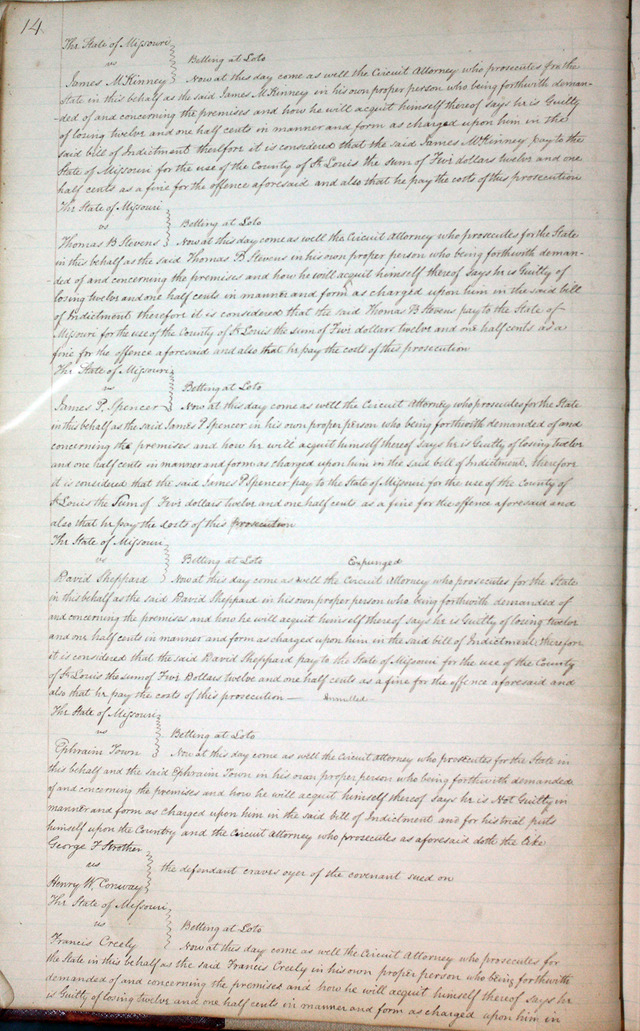 14
The State of Missouri
vs
Betting at Loto
James McKinney
Now at this day come as well the Circuit Attorney who prosecutes for the
State in this behalf as the said James McKinney in his own proper person who being forthwith deman-
-ded of and concerning the premises and how he will acquit himself thereof says he is Guilty
of losing twelve and one half cents in manner and form as charged upon him in the
said bill of Indictment therefore it is considered that the said James McKinney pay to the
State of Missouri for the use of the County of St Louis the sum of Five dollars twelve and one
half cents as a fine for the offence aforesaid and also that he pay the costs of this prosecution
The State of Missouri
vs
Betting at Loto
Thomas B Stevens
Now at this day come as well the Circuit Attorney who prosecutes for the State
in this behalf as the said Thomas B Stevens in his own proper person who being forthwith deman-
-ded of and concerning the premises and how he will acquit himself thereof Says he is Guilty of
losing twelve and one half cents in manner and form as charged upon him in the said bill
of Indictment therefore it is considered that the said Thomas B Stevens pay to the State of
Missouri for the use of the County of St Louis the sum of Five dollars twelve and one half cents as a
fine for the offence aforesaid and also that he pay the costs of this prosecution
The State of Missouri
vs
Betting at Loto
James P. Spencer
Now at this day come as well the Circuit Attorney who prosecutes for the State
in this behalf as the said James P Spencer in his own proper person who being forthwith demanded of and
concerning the premises and how he will acquit himself thereof Says he is Guilty of losing twelve
and one half cents in manner and form as charged upon him in the said bill of Indictment. therefore
it is considered that the said James P Spencer pay to the State of Missouri for the use of the County of
St Louis the Sum of Five dollars twelve and one half cents as a fine for the offence aforesaid and
also that he pay the Costs of this prosecution
The State of Missouri
vs
Betting at Loto Expunged
David Sheppard
Now at this day come as well the Circuit Attorney who prosecutes for the State
in this behalf as the said David Sheppard in his own proper person who being forthwith demanded of
and concerning the premises and how he will acquit himself thereof says he is Guilty of losing twelve
and one half cents in manner and form as charged upon him in the said bill of Indictment. therefore
it is considered that the said David Sheppard pay to the State of Missouri for the use of the County
of St Louis the sum of Five Dollars twelve and one half cents as a fine for the offence aforesaid and
also that he pay the costs of this prosecution — Annulled
The State of Missouri
vs
Betting at Loto
Ephraim Town
Now at this day come as well the Circuit attorney who prosecutes for the State in
this behalf and the said Ephraim Town in his own proper person who being forthwith demanded
of and concerning the premises and how he will acquit himself thereof says he is Not Guilty in
manner and form as charged upon him in the said bill of Indictment and for his trial puts
himself upon the Country and the Circuit attorney who prosecutes as aforesaid doth the like
George F Strother
vs
the defendant craves oyer of the covenant sued on
Henry W. Conway
The State of Missouri
vs
Betting at Loto
Francis Creely
Now at this day come as well the Circuit Attorney who prosecutes for
the State in this behalf as the said Francis Creely in his own proper person who being forthwith
demanded of and concerning the premises and how he will acquit himself thereof says he
is Guilty of losing twelve and one half cents in manner and form as charged upon him in